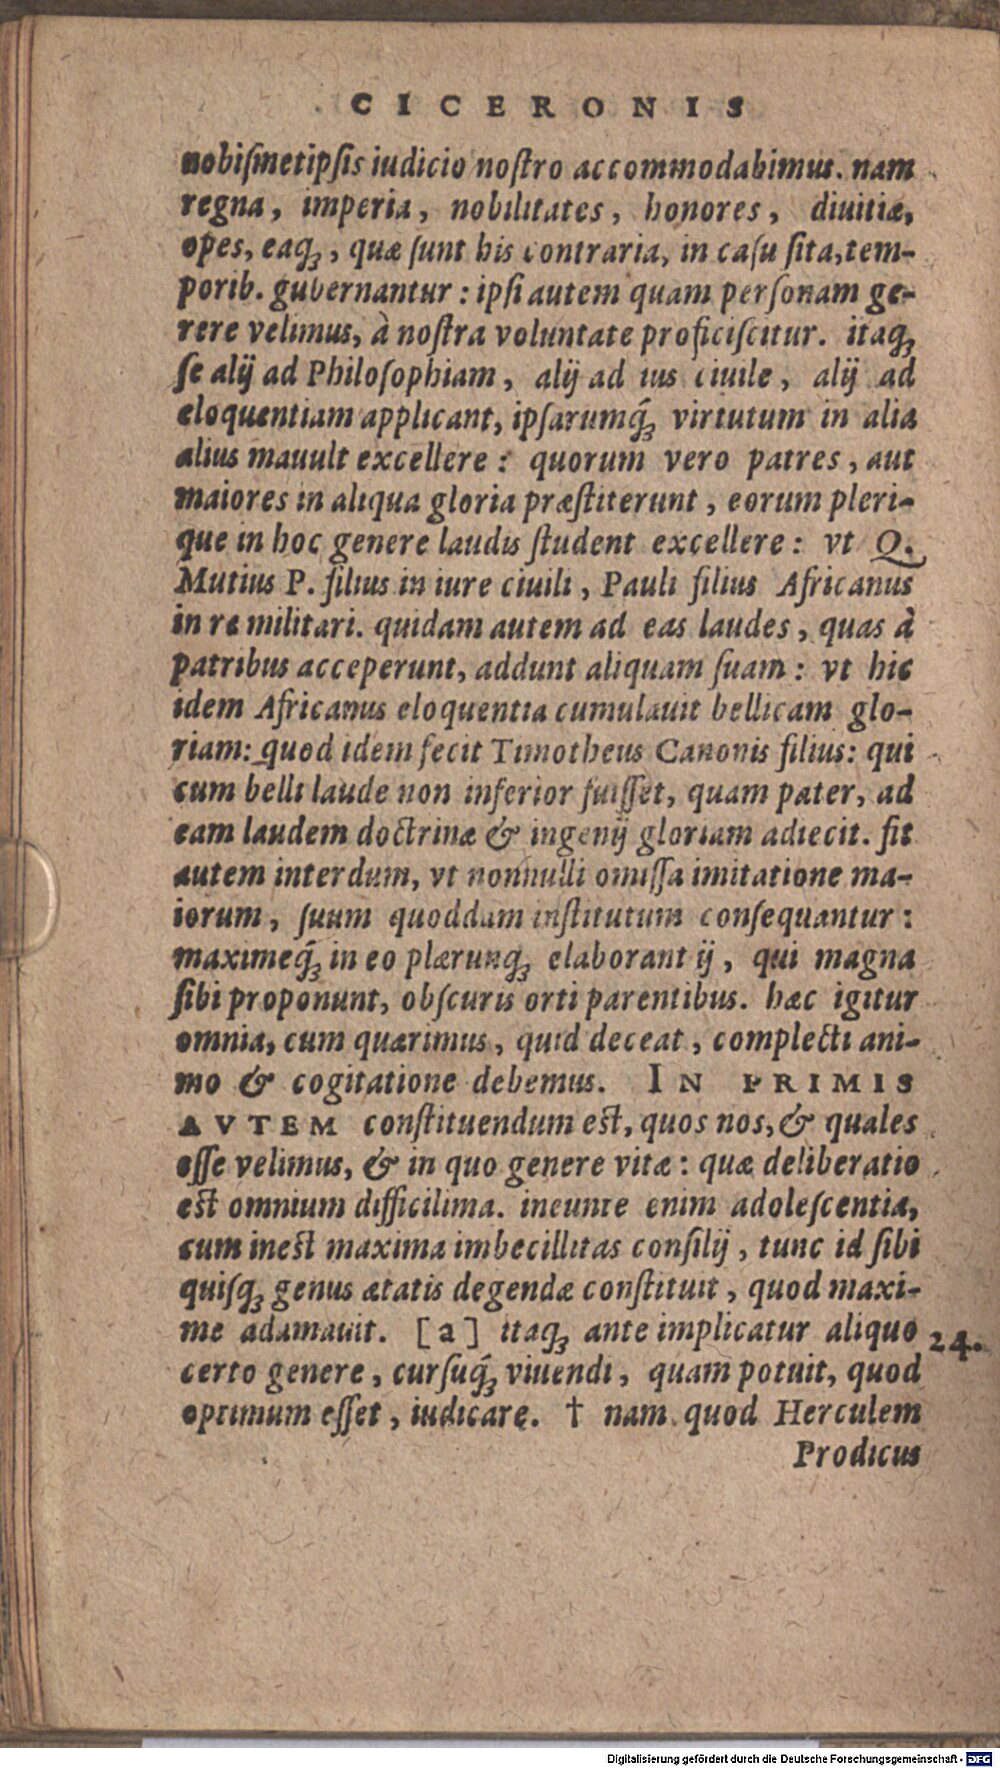 CICERONIS
nobiſmetipſis iudicio noſtro accommodabimus. nam
regna, imperia, nobilitates, honores, diuitiæ,
opes, eaq́ꝫ, quæ ſunt his contraria, in caſu ſita, tem-
porib. gubernantur: ipſi autem quam perſonam ge-
rere velimus, à noſtra voluntate proficiſcitur. itaqꝫ
ſe alij ad Philoſophiam, alij ad ius ciuile, alij ad
eloquentiam applicant, ipſarumq́ꝫ virtutum in alia
alius mauult excellere: quorum vero patres, aut
maiores in aliqua gloria præſtiterunt, eorum pleri-
que in hoc genere laudis ſtudent excellere: vt Q.
Mutius P. filius in iure ciuili, Pauli filius Africanus
in re militari. quidam autem ad eas laudes, quas à
patribus acceperunt, addunt aliquam ſuam: vt hic
idem Africanus eloquentia cumulauit bellicam glo-
riam: quod idem fecit Timotheus Canonis filius: qui
cum belli laude non inferior fuiſſet, quam pater, ad
eam laudem doctrinæ & ingenij gloriam adiecit. fit
autem interdum, vt nonnulli omiſſa imitatione ma-
iorum, ſuum quoddam inſtitutum conſequantur:
maximeq́ꝫ in eo plærunqꝫ elaborant ij, qui magna
ſibi proponunt, obſcuris orti parentibus. hæc igitur
omnia, cum quærimus, quid deceat, complecti ani-
mo & cogitatione debemus. IN PRIMIS
AVTEM conſtituendum eſt, quos nos, & quales
eſſe velimus, & in quo genere vitæ: quæ deliberatio
eſt omnium difficilima. ineunte enim adoleſcentia,
cum ineſt maxima imbecillitas conſilij, tunc id ſibi
quiſqꝫ genus ætatis degendæ conſtituit, quod maxi-
me adamauit. [a] itaqꝫ ante implicatur aliquo 24.
certo genere, curſuq́ꝫ viuendi, quam potuit, quod
optimum eſſet, iudicare. † nam quod Herculem
Prodicus
Digitalisierung gefördert durch die Deutsche Forschungsgemeinschaft - DFG